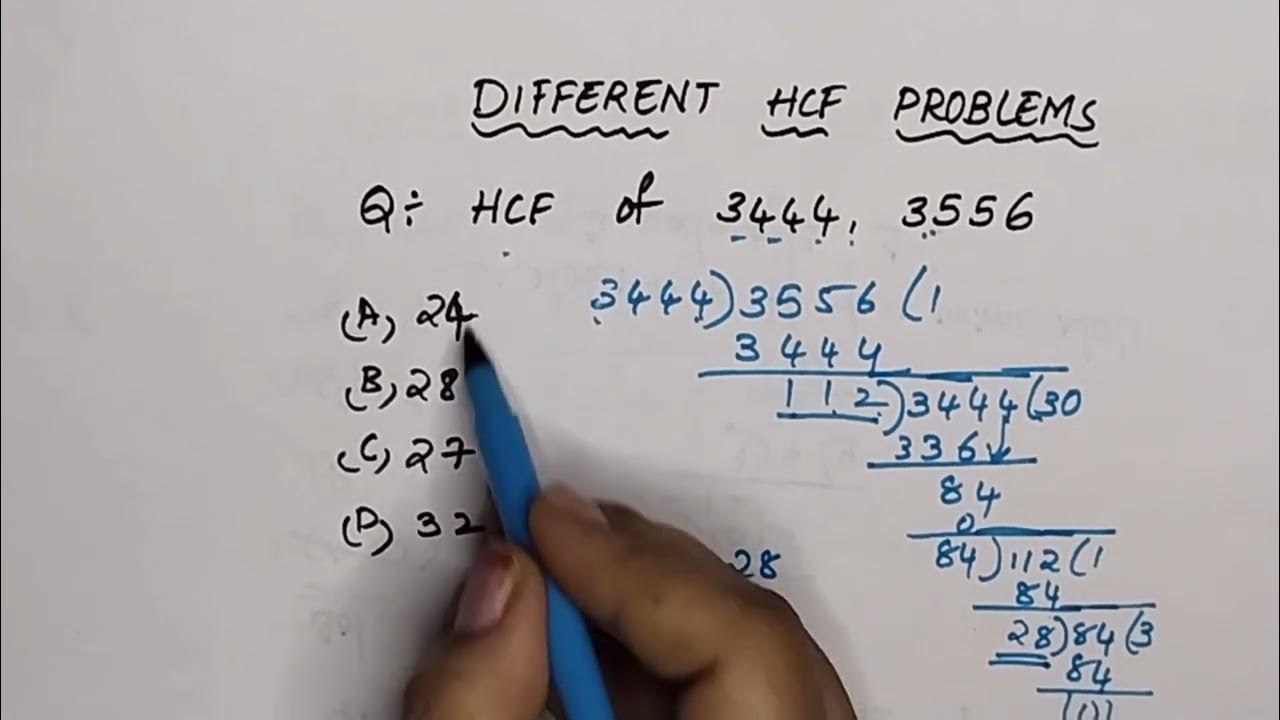 DIFFERENT HCF PROBLEMS
Q÷ HCF of 3444, 3556
(A) 24
(B) 28
(C) 27
(D) 32
3444)3556(1
3444
112)3444(30
336
84
0
84)112(1
84
28)84(3
84
28